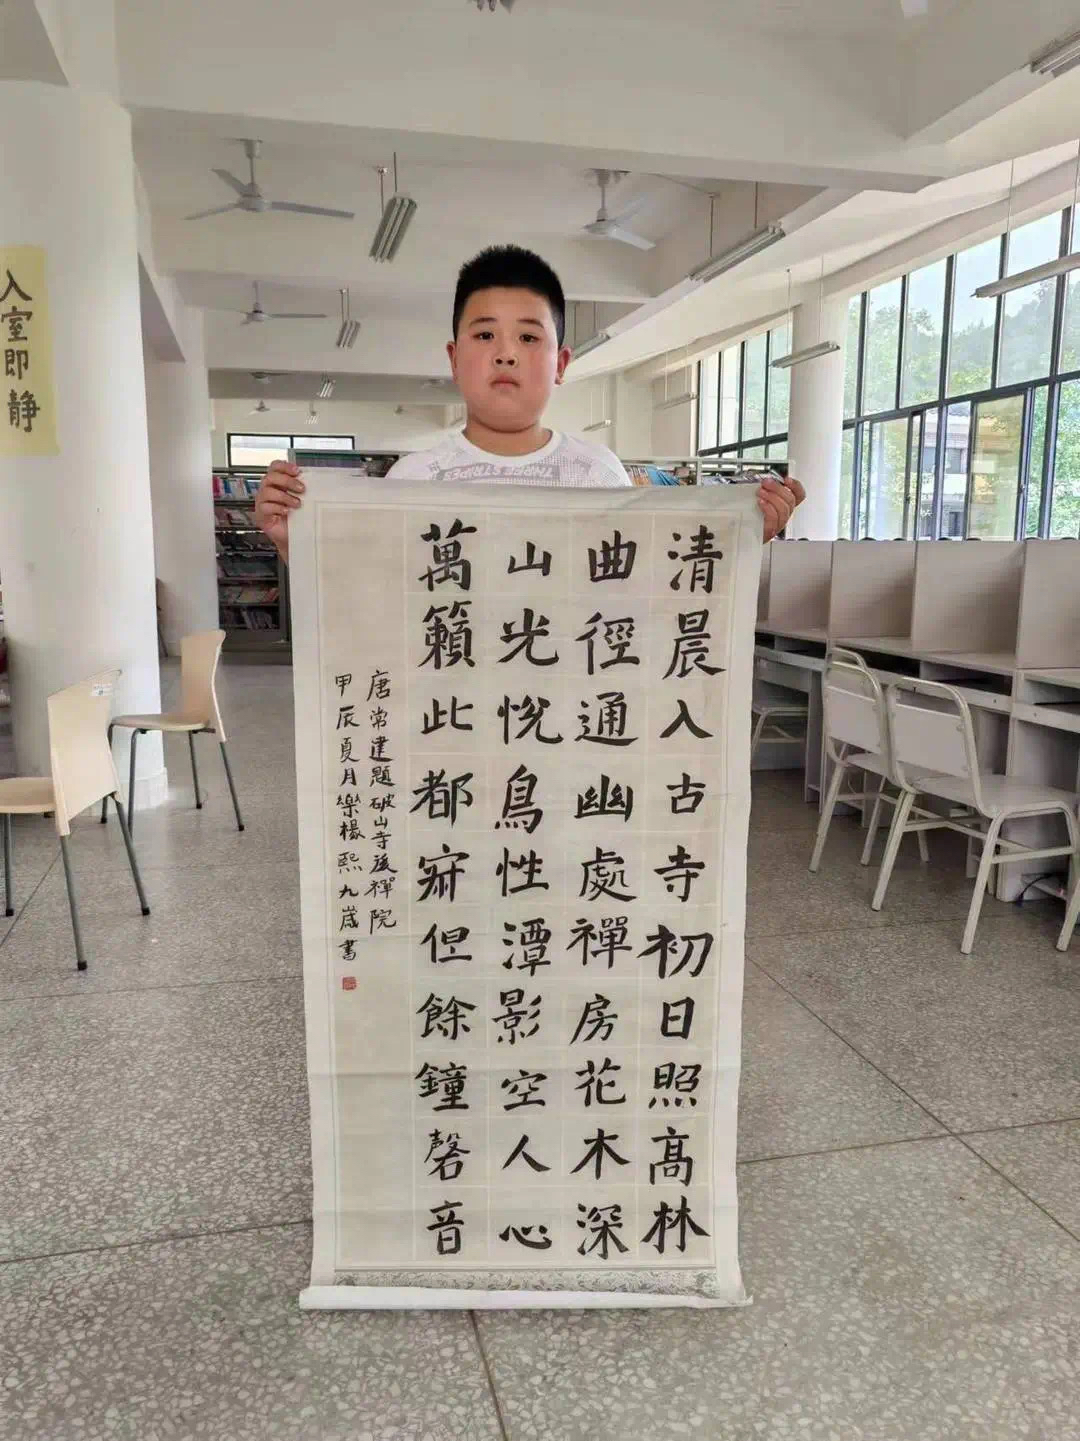 清晨入古寺初日照高林
曲徑通幽處禪房花木深
山光悅鳥性潭影空人心
萬籟此都寂但餘鐘磬音
唐常建題破山寺後禪院
甲辰夏月樂楊熙九歲書
入室即靜
THREE STRIPES